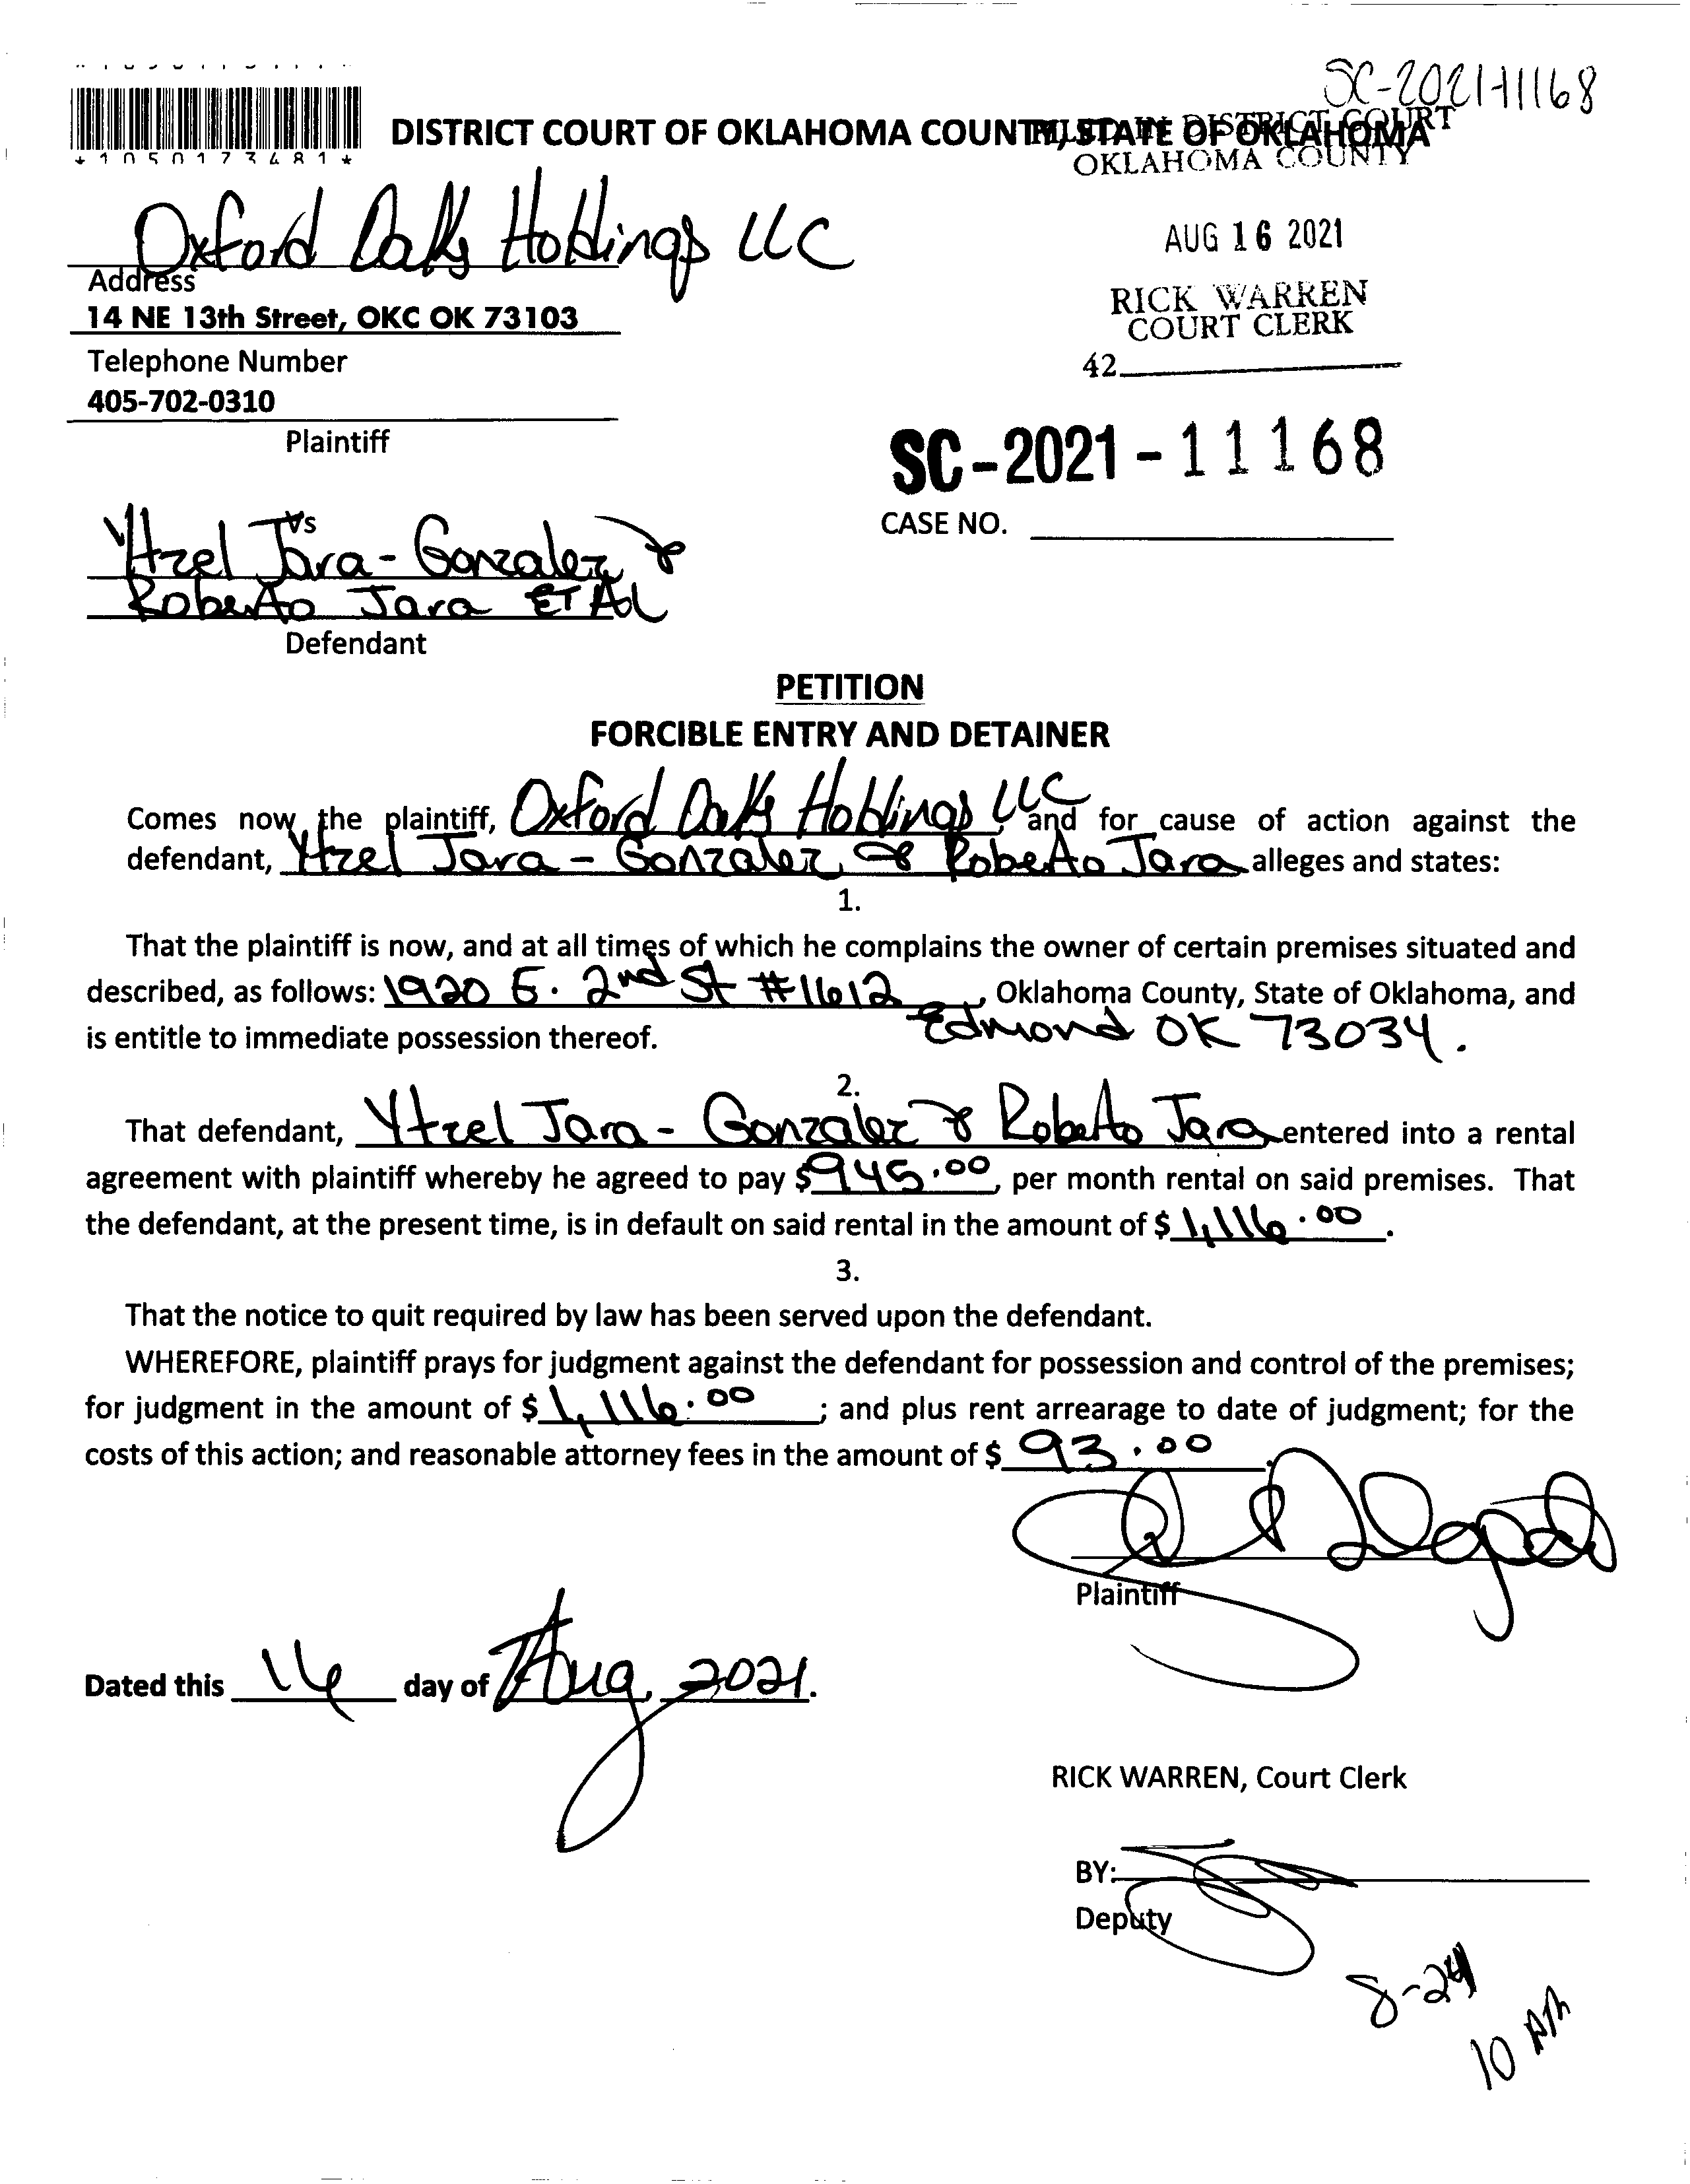 SC-2021-11168
*1050173481*
DISTRICT COURT OF OKLAHOMA COUNTY, STATE OF OKLAHOMA
FILED IN DISTRICT COURT
OKLAHOMA COUNTY
Oxford Oaks Holdings LLC
AUG 16 2021
Address
14 NE 13th Street, OKC OK 73103
RICK WARREN
COURT CLERK
Telephone Number
42
405-702-0310
Plaintiff
SC-2021-11168
Vs
CASE NO.
Ytzel Jara-Gonzalez &
Roberto Jara ET AL
Defendant
PETITION
FORCIBLE ENTRY AND DETAINER
Comes now the plaintiff, Oxford Oaks Holdings LLC, and for cause of action against the
defendant, Ytzel Jara-Gonzalez & Roberto Jara alleges and states:
1.
That the plaintiff is now, and at all times of which he complains the owner of certain premises situated and
described, as follows: 1920 E. 2nd St #1612, Oklahoma County, State of Oklahoma, and
Edmond OK 73034.
is entitle to immediate possession thereof.
2.
That defendant, Ytzel Jara-Gonzalez & Roberto Jara entered into a rental
agreement with plaintiff whereby he agreed to pay $945.00, per month rental on said premises. That
the defendant, at the present time, is in default on said rental in the amount of $1,116.00.
3.
That the notice to quit required by law has been served upon the defendant.
WHEREFORE, plaintiff prays for judgment against the defendant for possession and control of the premises;
for judgment in the amount of $1,116.00; and plus rent arrearage to date of judgment; for the
costs of this action; and reasonable attorney fees in the amount of $93.00.
Plaintiff
Dated this 16 day of Aug, 2021.
RICK WARREN, Court Clerk
BY:
Deputy
8-24
10 AM